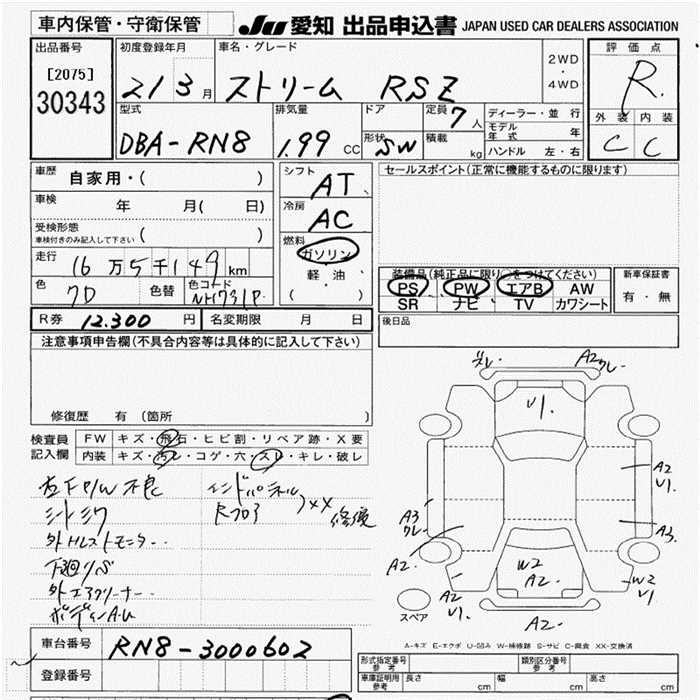 車内保管・守衛保管
JU 愛知 出品申込書 JAPAN USED CAR DEALERS ASSOCIATION
出品番号
[2075]
30343
初度登録年月
21 3月
車名・グレード
ストリーム RSZ
2WD
・
4WD
評価点
R.
外装 内装
C C
型式
DBA-RN8
排気量
1.99 CC
ドア
形状 SW
定員 7人
積載 kg
ディーラー・並行
モデル年式 年
ハンドル 左・右
車歴 自家用・( )
車検 年 月( 日)
受検形態
車検付きのみ記入して下さい ( )
走行 16万5千149km
色 クロ 色替 色コード NH731P
シフト AT
冷房 AC
燃料
ガソリン
軽油
( )
セールスポイント(正常に機能するものに限ります)
装備品(純正品に限り○をつけてください)
PS PW エアB AW
SR ナビ TV カワシート
新車保証書
有・無
R券 12.300 円 名変期限 月 日
後日品
注意事項申告欄(不具合内容等は具体的に記入して下さい)
修復歴 有 (箇所 )
検査員記入欄
FW キズ・飛石・ヒビ割・リペア跡・X要
内装 キズ・汚レ・コゲ・穴・スレ・キレ・破レ
左F P/W 不良
シートシワ
外HLストモニター--
下廻りサビ
外エアクリーナー--
ボディーAU
インドパネル
Rフロア
XX
修復
ズレ
A2 クレ
V1.
A2
V1.
A3
クレ
A2.
A3.
W2
A2.
A2
V1.
W2
V1.
A2-
スペア
A-キズ E-エクボ U-凹み W-補修跡 S-サビ C-腐食 XX-交換済
車台番号 RN8-3000602
登録番号
形式指定番号
参考
類別区分番号
参考
車庫証明用
参考
長さ cm 幅 cm 高さ cm